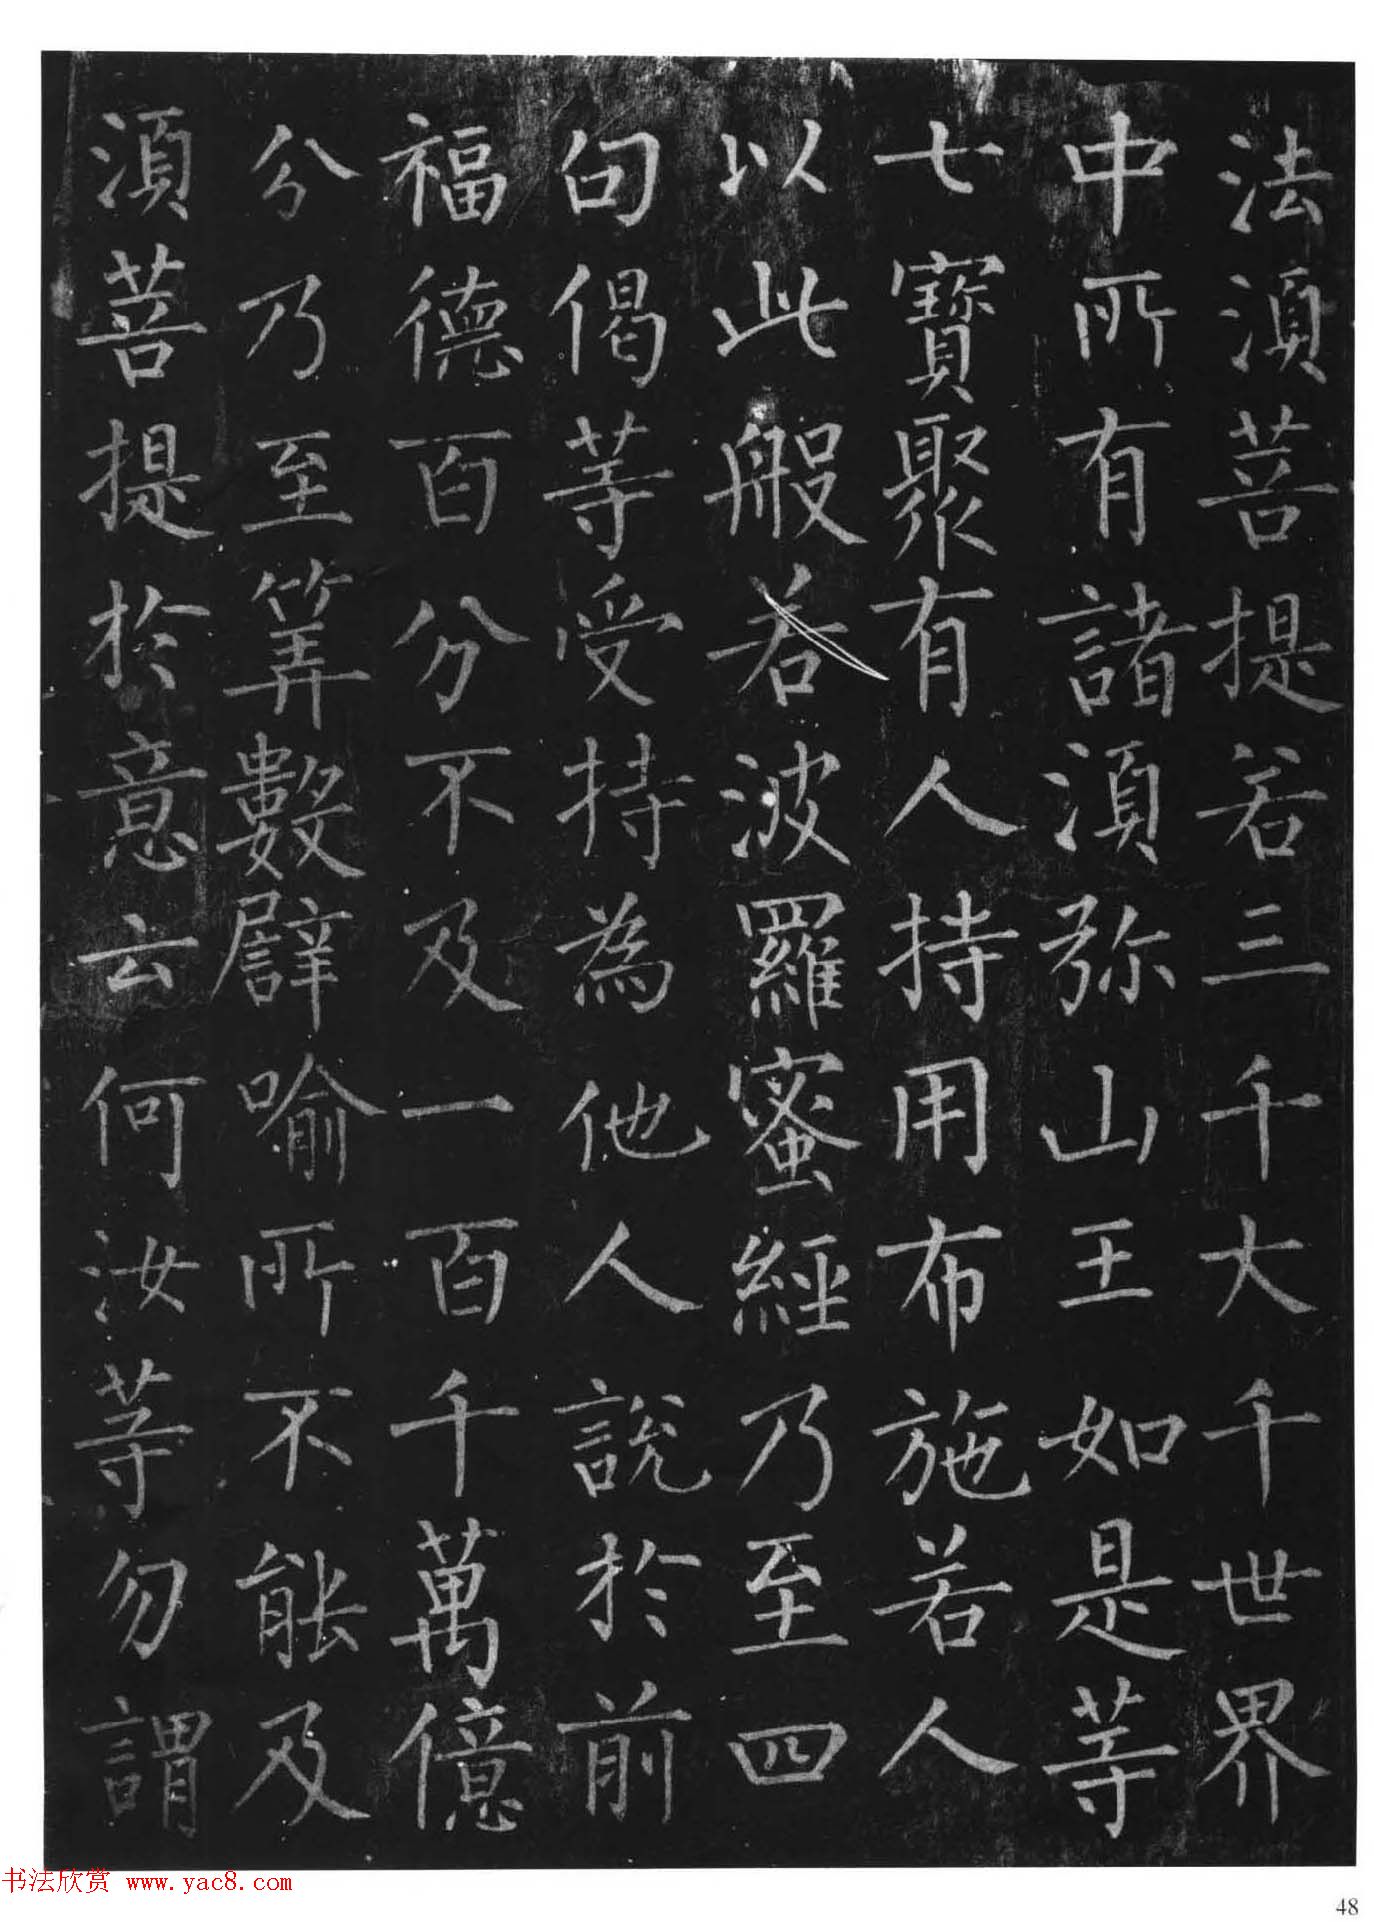 法須菩提若三千大千世界
中所有諸須弥山王如是等
七寶聚有人持用布施若人
以此般若波羅蜜經乃至四
句偈等受持為他人說於前
福德百分不及一百千萬億
分乃至筭數譬喻所不能及
須菩提於意云何汝等勿謂
书法欣赏 www.yac8.com
48